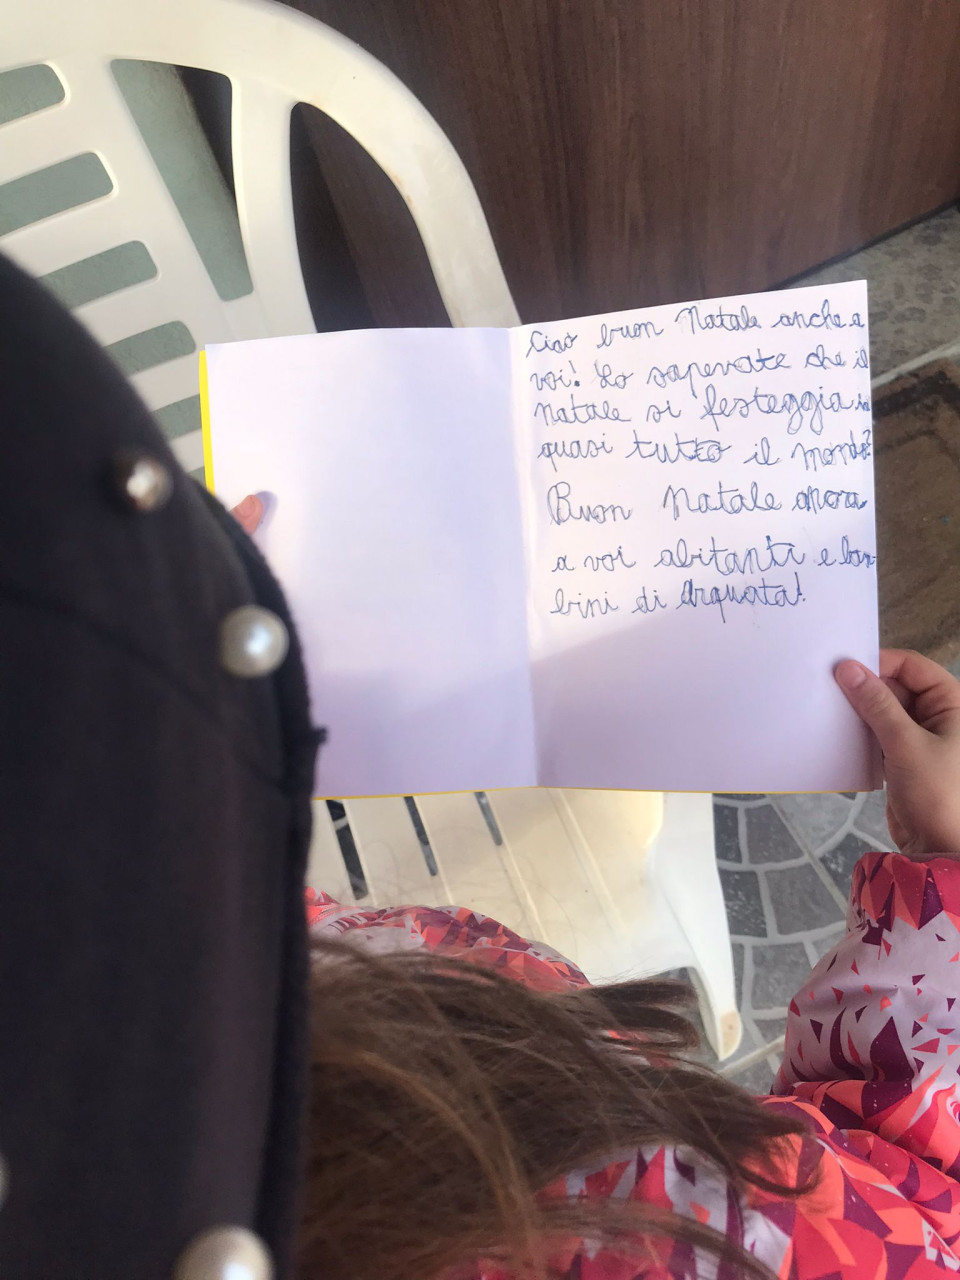 Ciao buon Natale anche a
voi! Lo sapevate che il
Natale si festeggia in
quasi tutto il mondo?
Buon Natale ancora
a voi abitanti e bam-
bini di Arquata!